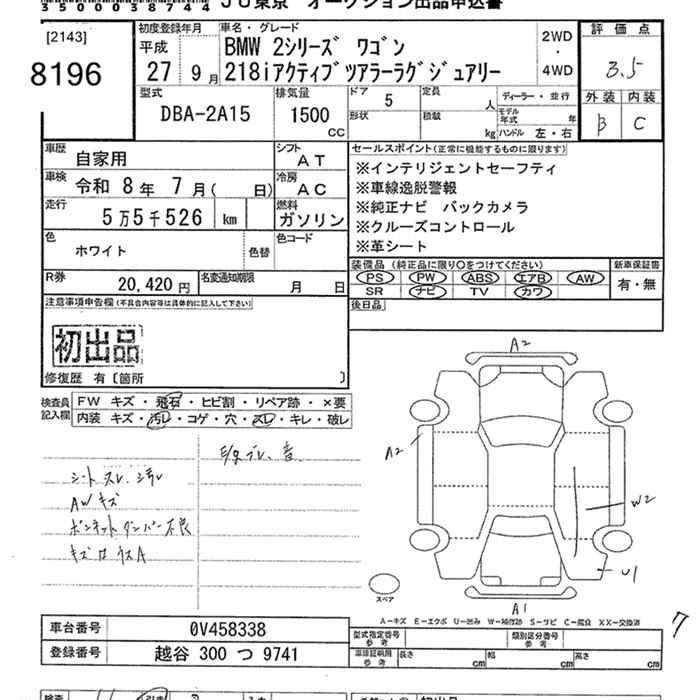 3500038744 JU東京 オークション出品申込書
[2143]
8196
初度登録年月
平成
27 9月
車名・グレード
BMW 2シリーズ ワゴン
218iアクティブツアラーラグジュアリー
2WD
・
4WD
評価点
3.5
外装 内装
B C
型式
DBA-2A15
排気量
1500
cc
ドア 5
形状
定員 人
積載 kg
ディーラー・並行
モデル年式 年
ハンドル 左・右
車歴 自家用
シフト AT
車検 令和 8年 7月( 日)
冷房 AC
走行 5万5千526 km
燃料 ガソリン
色 ホワイト
色替
色コード
R券 20,420円
名変通知期限 月 日
セールスポイント(正常に機能するものに限ります)
※インテリジェントセーフティ
※車線逸脱警報
※純正ナビ バックカメラ
※クルーズコントロール
※革シート
装備品(純正品に限り○をつけてください)
PS PW ABS エアB AW
SR ナビ TV カワ
新車保証書
有・無
後日品
注意事項申告欄(不具合内容等は具体的に記入して下さい)
初出品
修復歴 有〔箇所 〕
検査員記入欄
FW キズ・飛石・ヒビ割・リペア跡・×要
内装 キズ・汚レ・コゲ・穴・スレ・キレ・破レ
シートスレ、汚レ
AWキズ
ボンネットダンパー不良
キズ凹ウスA
E/gブレ、音
A2
A2
W2
U1
A1
スペア
A-キズ E-エクボ U-凹み W-補修跡 S-サビ C-腐食 XX-交換済
7
車台番号 0V458338
登録番号 越谷 300 つ 9741
型式指定番号
参考
類別区分番号
参考
車庫証明用
参考
長さ cm 幅 cm 高さ cm